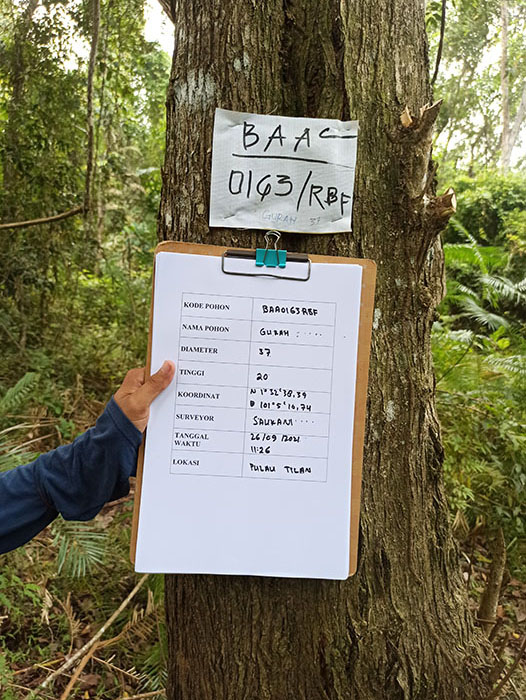 BAA
0163/RBF
GURAH 37
KODE POHON BAA0163RBF
NAMA POHON GURAH : ....
DIAMETER 37
TINGGI 20
KOORDINAT N 1°32'38,39
E 101°5'10,74
SURVEYOR SAUKANI ....
TANGGAL 26/09/2021
WAKTU 11:26
LOKASI PULAU TILAN